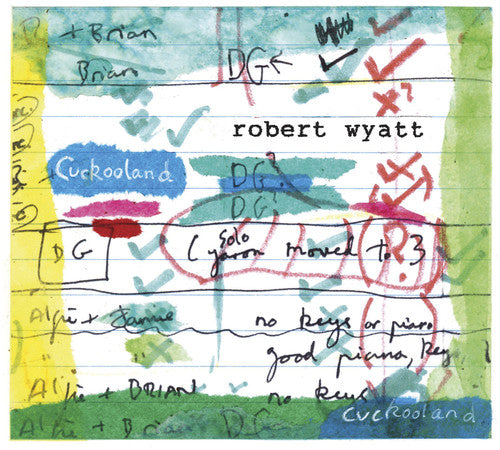 + Brian
Brian DG ←
x?
robert wyatt
Cuckooland DG?
4
DG?
DG (solo yaron moved to 3
?
Alfie + Jamie no keys or piano
" " good piano, key
Alfie + BRIAN no keys
Cuckooland
Alfie + Bri DG